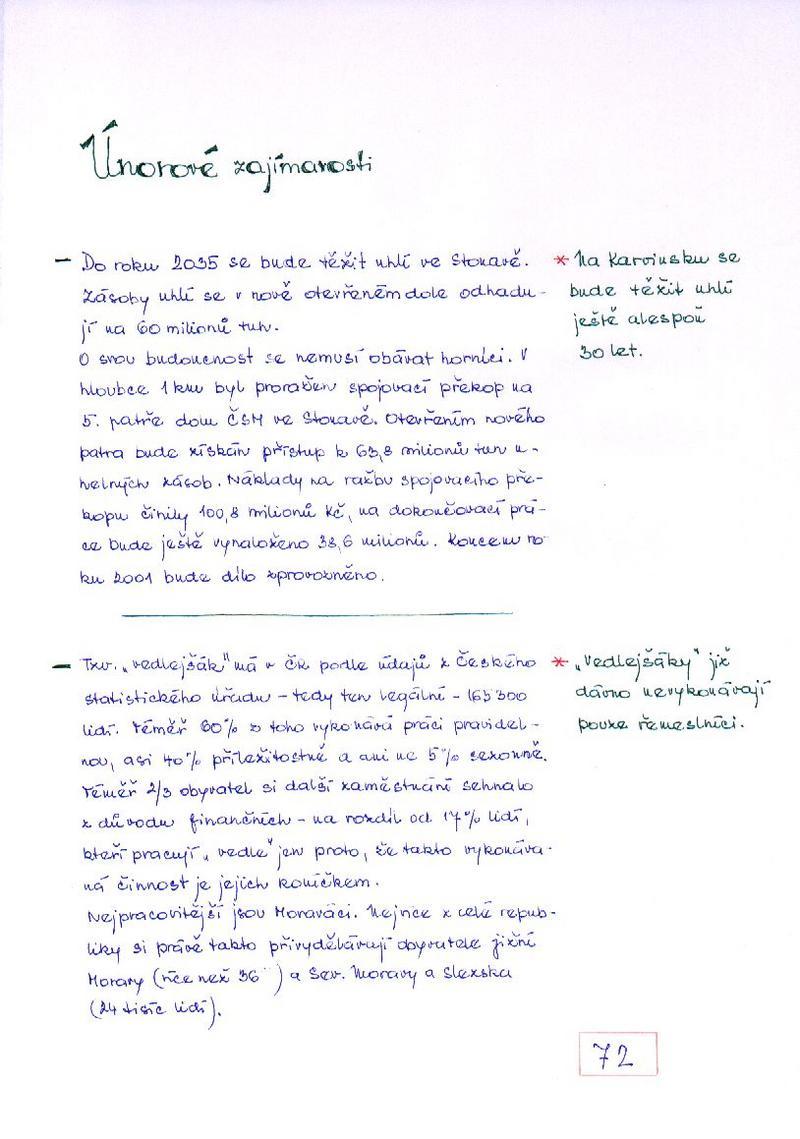 Únorové zajímavosti
- Do roku 2035 se bude těžit uhlí ve Stonavě.
Zásoby uhlí se v nově otevřeném dole odhadu-
jí na 60 milionů tun.
O svou budoucnost se nemusí obávat horníci. V
hloubce 1 km byl proražen spojovací překop na
5. patře dolu ČSM ve Stonavě. Otevřením nového
patra bude získán přístup k 63,8 milionů tun u-
helných zásob. Náklady na ražbu spojovacího pře-
kopu činily 100,8 milionů Kč, na dokončovací prá-
ce bude ještě vynaloženo 38,6 milionů. Koncem ro-
ku 2001 bude dílo zprovozněno.
* Na Karvinsku se
bude těžit uhlí
ještě alespoň
30 let.
- Tzv. „vedlejšák" má v ČR podle údajů z Českého
statistického úřadu - tedy ten legální - 165 300
lidí. Téměř 60% z toho vykonává práci pravidel-
nou, asi 40% příležitostně a ani ne 5% sezonně.
Téměř 2/3 obyvatel si další zaměstnání sehnalo
z důvodu finančních - na rozdíl od 17% lidí,
kteří pracují „vedle" jen proto, že takto vykonáva-
ná činnost je jejich koníčkem.
Nejpracovitější jsou Moraváci. Nejvíce z celé repub-
liky si právě takto přivydělávají obyvatelé jižní
Moravy (více než 36 ) a Sev. Moravy a Slezska
(24 tisíc lidí).
* „Vedlejšáky" již
dávno nevykonávají
pouze řemeslníci.
72